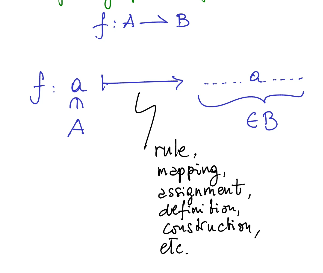 f : A → B
f : a ↦ ---- a ----
∩
A
∈ B
rule,
mapping,
assignment,
definition,
construction,
etc.